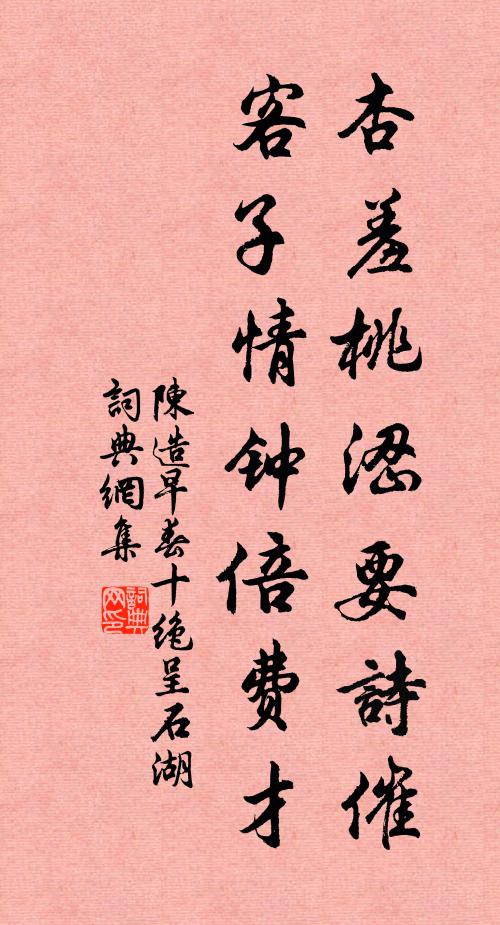 杏羞桃涩要詩催
客子情钟倍費才
陳造早春十绝呈石湖
詞典網集
詞典网印